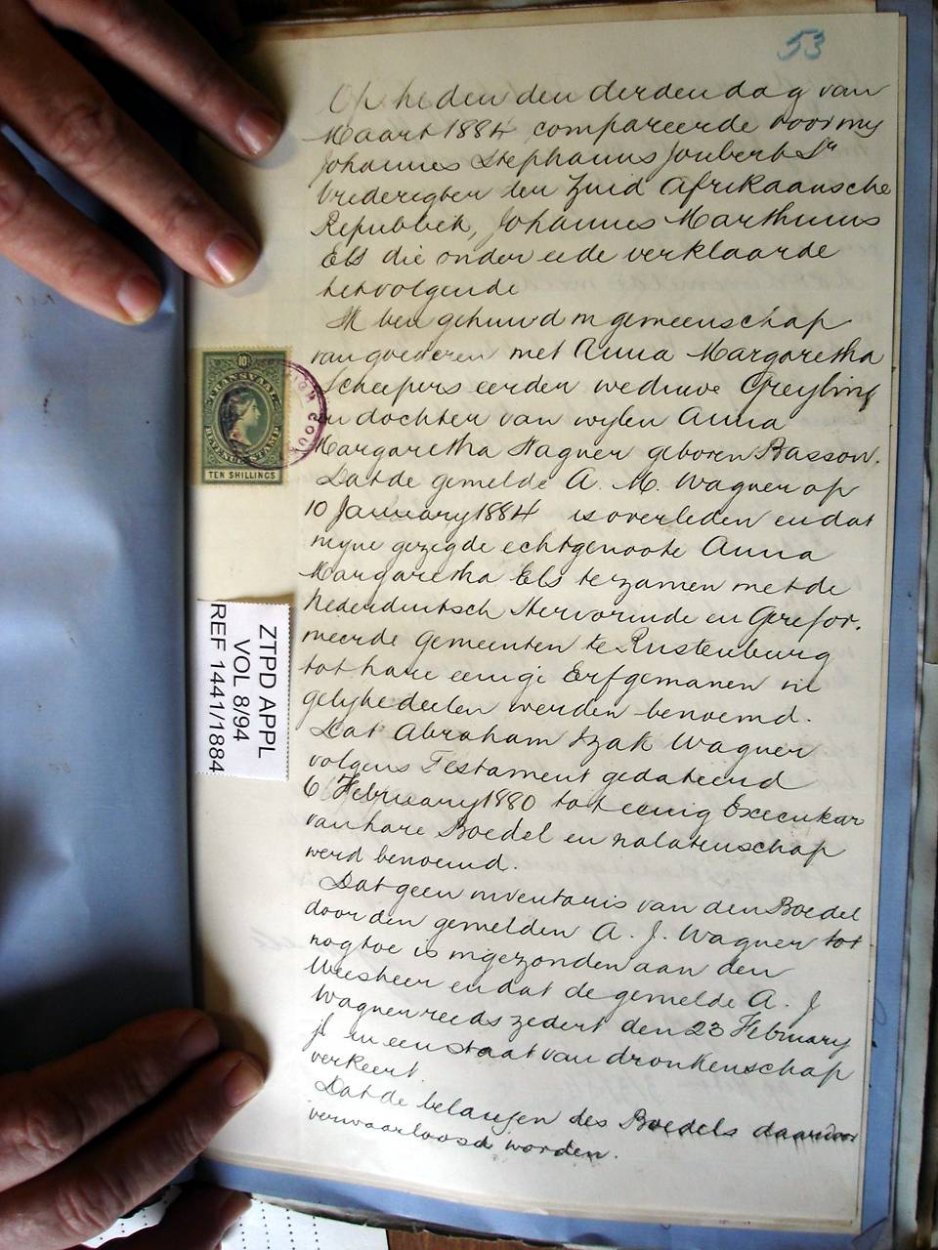 53
Op heden den derden dag van
Maart 1884 compareerde voor my
Johannes Stephanus Joubert Sr
Vrederegter der Zuid Afrikaansche
Republiek, Johannes Marthinus
Els die onder eede verklaarde
hetvolgende
Ik ben gehuwd in gemeenschap
van goederen met Anna Margaretha
Scheepers eerder weduwe Greyling
en dochter van wylen Anna
Margaretha Wagner geboren Basson.
Dat de gemelde A. M. Wagner op
10 January 1884 is overleden en dat
myne gezegde echtgenoote Anna
Margaretha Els te zamen met de
Nederduitsch Hervormde en Gerefor.
meerde gemeenten te Rustenburg
tot hare eenige Erfgenamen in
gelyke deelen werden benoemd.
Dat Abraham Izak Wagner
volgens Testament gedateerd
6 February 1880 tot eenig Executeur
van hare Boedel en nalatenschap
werd benoemd.
Dat geen inventaris van den Boedel
door den gemelden A. J. Wagner tot
nog toe is ingezonden aan den
Weesheer en dat de gemelde A. J
Wagner reeds zedert den 23 February
jl in een staat van dronkenschap
verkeert.
Dat de belangen des Boedels daardoor
verwaarloosd worden.
10/
TRANSVAAL
REVENUE STAMP
TEN SHILLINGS
ZTPD APPL
VOL 8/94
REF 1441/1884